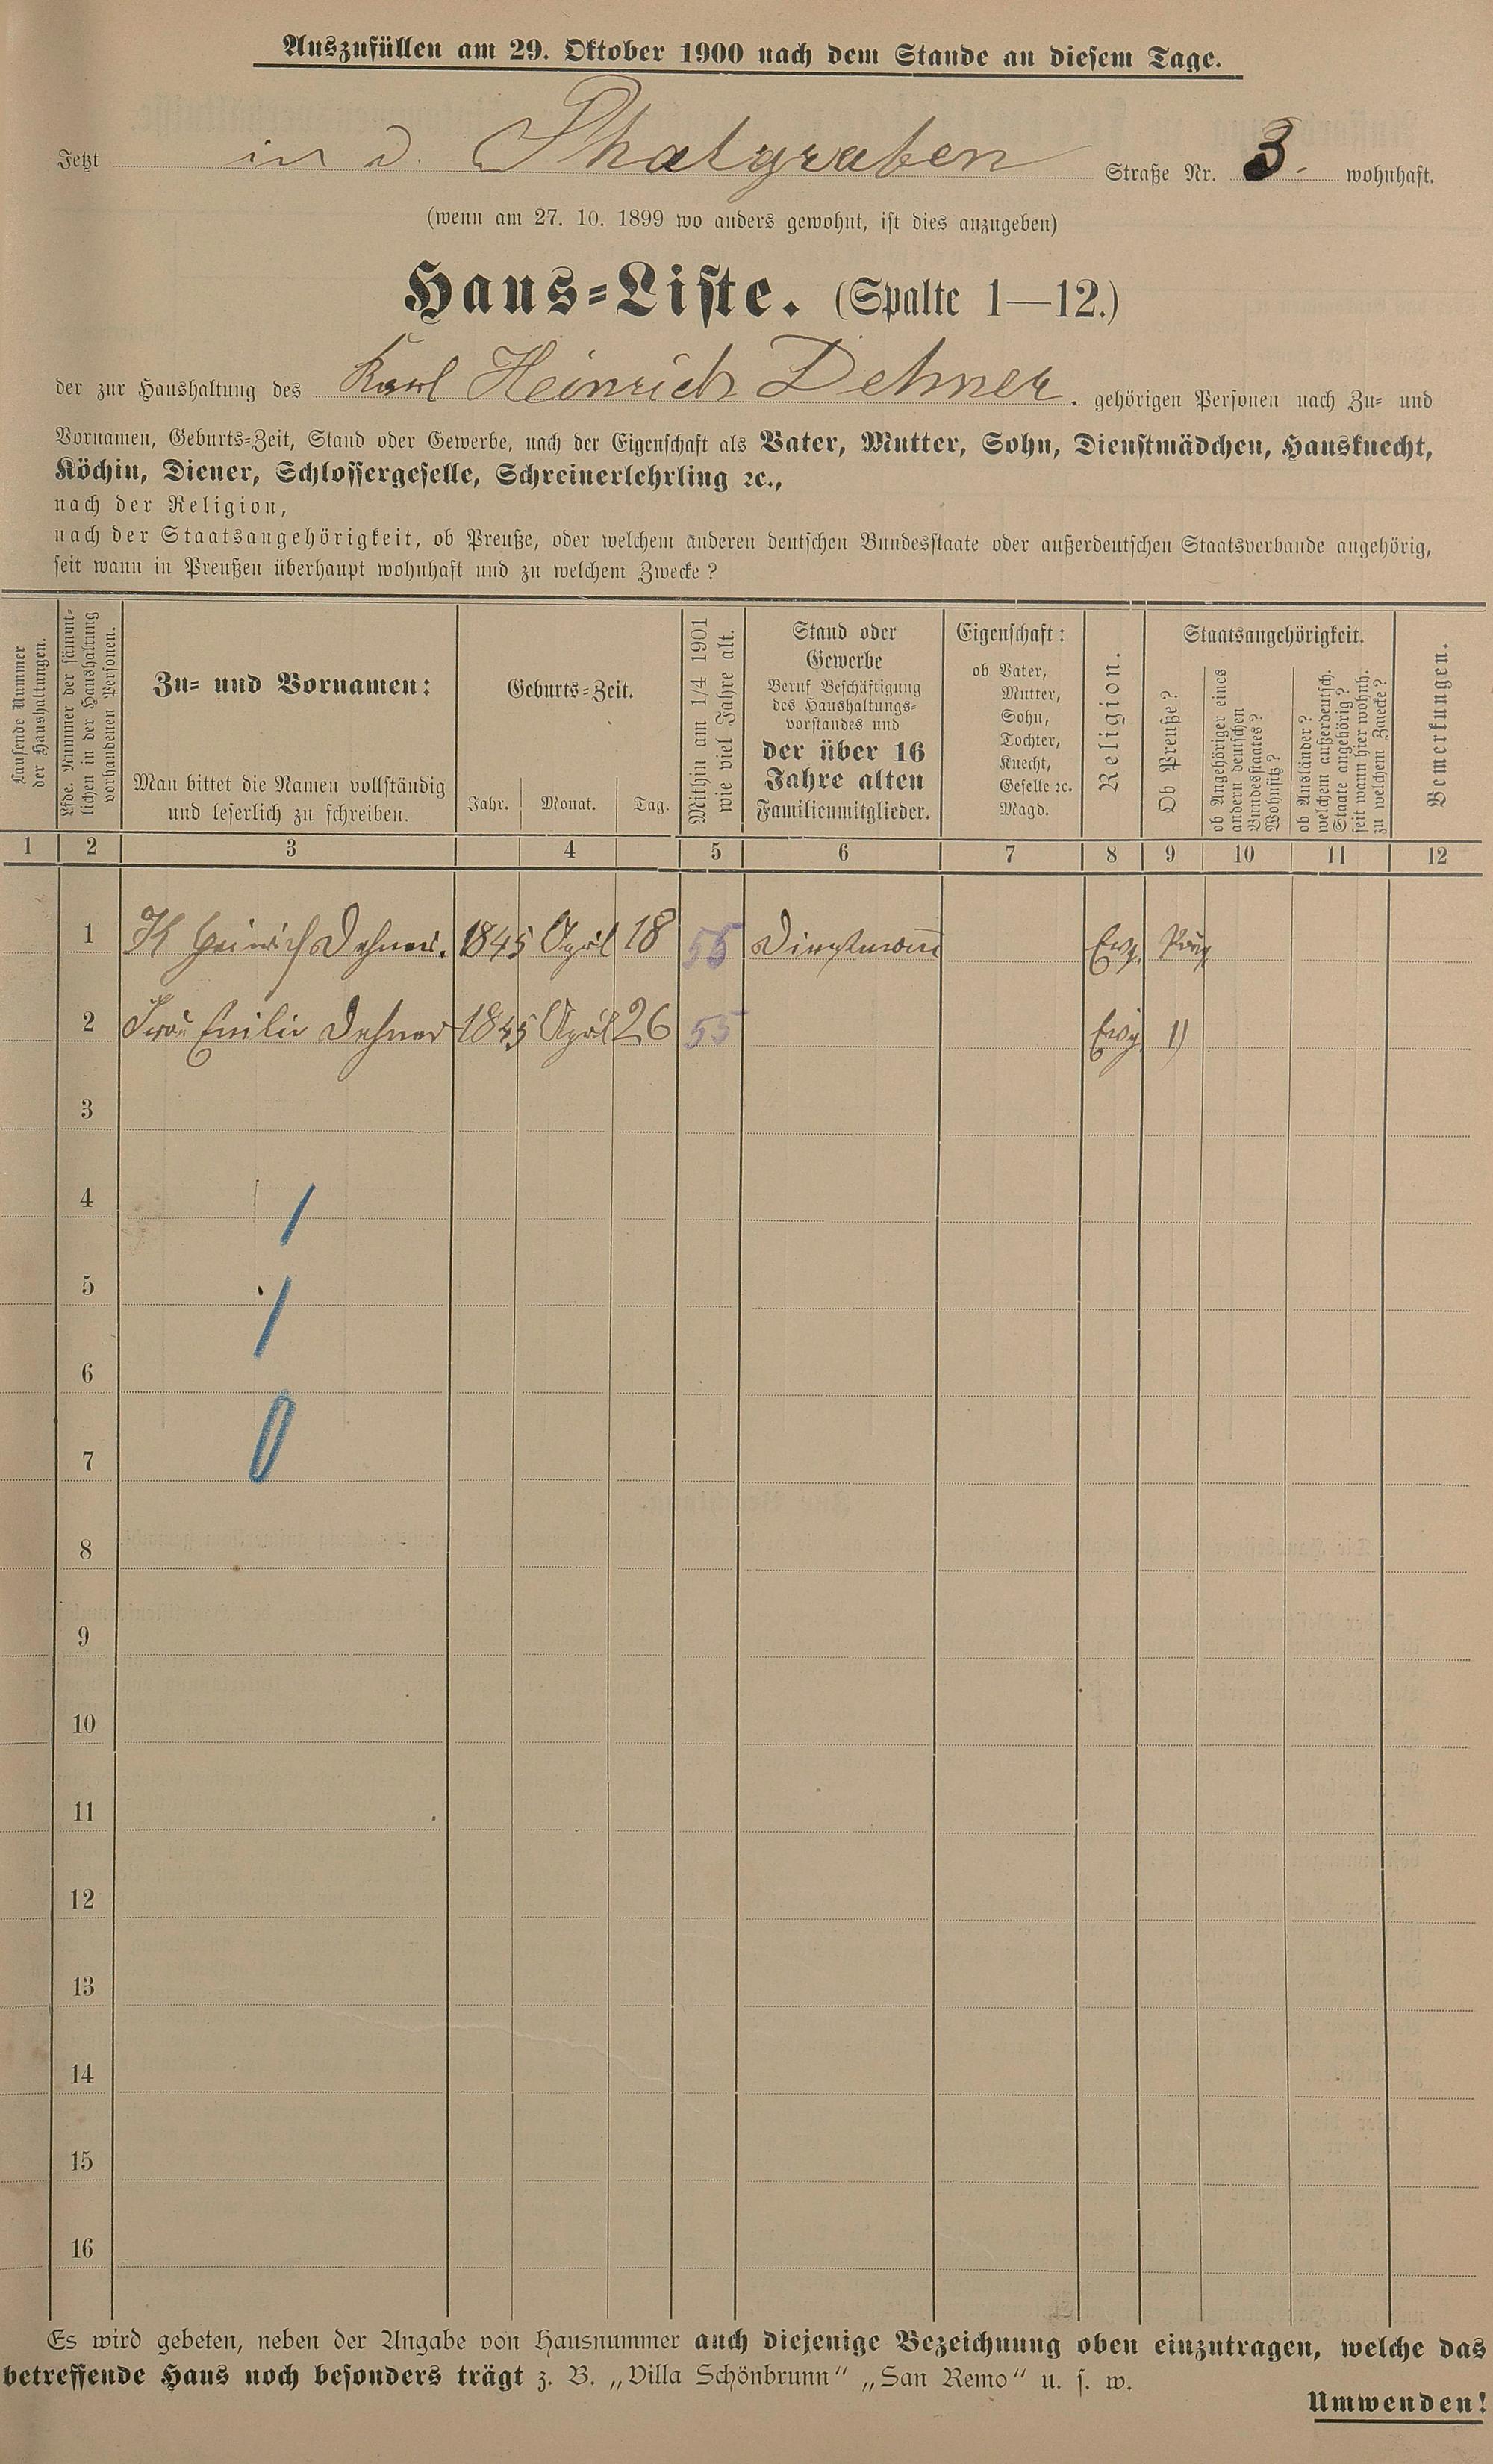 Auszufüllen am 29. Oktober 1900 nach dem Stande an diesem Tage.
Jetzt in d. Thalgraben Straße Nr. 3. wohnhaft.
(wenn am 27. 10. 1899 wo anders gewohnt, ist dies anzugeben)
Haus-Liste. (Spalte 1—12.)
der zur Haushaltung des Karl Heinrich Dehner. gehörigen Personen nach Zu- und
Vornamen, Geburts-Zeit, Stand oder Gewerbe, nach der Eigenschaft als Vater, Mutter, Sohn, Dienstmädchen, Hausknecht,
Köchin, Diener, Schlossergeselle, Schreinerlehrling ꝛc.,
nach der Religion,
nach der Staatsangehörigkeit, ob Preuße, oder welchem anderen deutschen Bundesstaate oder außerdeutschen Staatsverbande angehörig,
seit wann in Preußen überhaupt wohnhaft und zu welchem Zwecke?
Laufende Nummer
der Haushaltungen.
Lfde. Nummer der sämmt-
lichen in der Haushaltung
vorhandenen Personen.
Zu- und Vornamen:
Man bittet die Namen vollständig
und leserlich zu schreiben.
Geburts-Zeit.
Jahr. Monat. Tag.
Mithin am 1/4 1901
wie viel Jahre alt.
Stand oder
Gewerbe
Beruf Beschäftigung
des Haushaltungs-
vorstandes und
der über 16
Jahre alten
Familienmitglieder.
Eigenschaft:
ob Vater,
Mutter,
Sohn,
Tochter,
Knecht,
Geselle ꝛc.
Magd.
Religion.
Staatsangehörigkeit.
Ob Preuße?
ob Angehöriger eines
andern deutschen
Bundesstaates?
Wohnsitz?
ob Ausländer?
welchem außerdeutsch.
Staate angehörig?
seit wann hier wohnh.
zu welchem Zwecke?
Bemerkungen.
1 2 3 4 5 6 7 8 9 10 11 12
1 K Heinrich Dehner. 1845 April 18 55 Dienstmann Evg.
2 Frau Emilie Dehner 1845 April 26 55 Evg. "
3
4
5
6
7
8
9
10
11
12
13
14
15
16
Es wird gebeten, neben der Angabe von Hausnummer auch diejenige Bezeichnung oben einzutragen, welche das
betreffende Haus noch besonders trägt z. B. „Villa Schönbrunn“ „San Remo“ u. s. w.
Umwenden!